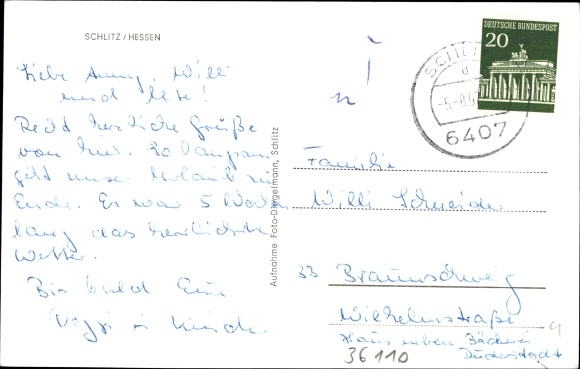 SCHLITZ / HESSEN
Liebe Anny, Willi
und Ilse!
Recht herzliche Grüße
von hier. So langsam
geht unser Urlaub zu
Ende. Es war 5 Wochen
lang das herrlichste
Wetter.
Bis bald Eure
u. Kinder
Aufnahme Foto-Dingelmann, Schlitz
DEUTSCHE BUNDESPOST
20
SCHLITZ
d
6407
Familie
Willi Schneider
33 Braunschweig
Wilhelmstraße
Haus neben Bäckerei
Duderstadt
36110